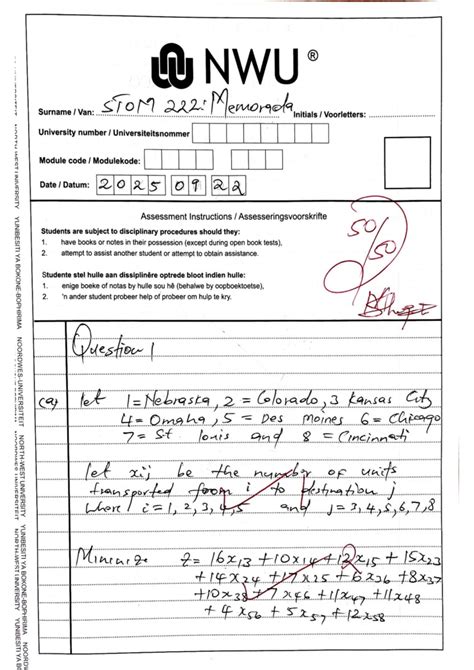 NWU®
Surname / Van: STOM 222: Memoranda Initials / Voorletters:
University number / Universiteitsnommer
Module code / Modulekode:
Date / Datum: 2025 09 22
Assessment Instructions / Assesseringsvoorskrifte
Students are subject to disciplinary procedures should they:
1. have books or notes in their possession (except during open book tests),
2. attempt to assist another student or attempt to obtain assistance.
Studente stel hulle aan dissiplinêre optrede bloot indien hulle:
1. enige boeke of notas by hulle sou hê (behalwe by oopboektoetse),
2. 'n ander student probeer help of probeer om hulp te kry.
50/50
Question 1
(a) let 1=Nebraska, 2 = Colorado, 3 Kansas City
4 = Omaha, 5 = Des Moines 6 = Chicago
7 = St louis and 8 = Cincinnati
let xij be the number of units
transported from i to destination j
where i = 1, 2, 3, 4, 5 and j = 3, 4, 5, 6, 7, 8
Minimize Z = 16x13 + 10x14 + 12x15 + 15x23
+ 14x24 + 17x25 + 6x36 + 8x37
+ 10x38 + 7x46 + 11x47 + 11x48
+ 4x56 + 5x57 + 12x58
NOORDWES-UNIVERSITEIT
NORTH-WEST UNIVERSITY
YUNIBESITI YA BOKONE-BOPHIRIMA